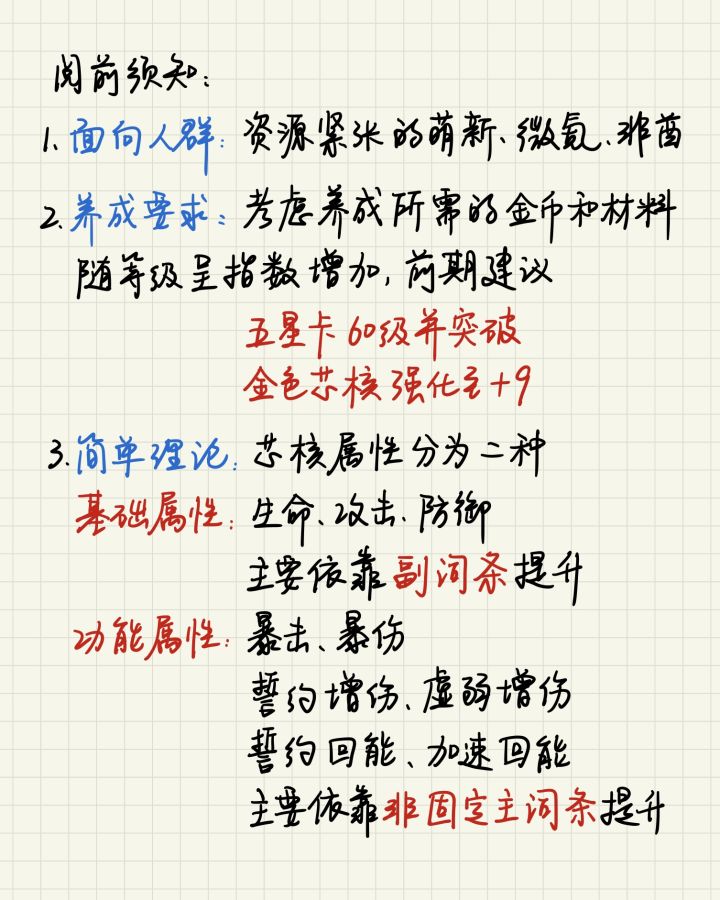 阅前须知:
1. 面向人群: 资源紧张的萌新、微氪、非酋
2. 养成要求: 考虑养成所需的金币和材料
随等级呈指数增加, 前期建议
五星卡60级并突破
金色芯核强化至+9
3. 简单理论: 芯核属性分为二种
基础属性: 生命、攻击、防御
主要依靠副词条提升
功能属性: 暴击、暴伤
誓约增伤、虚弱增伤
誓约回能、加速回能
主要依靠非固定主词条提升